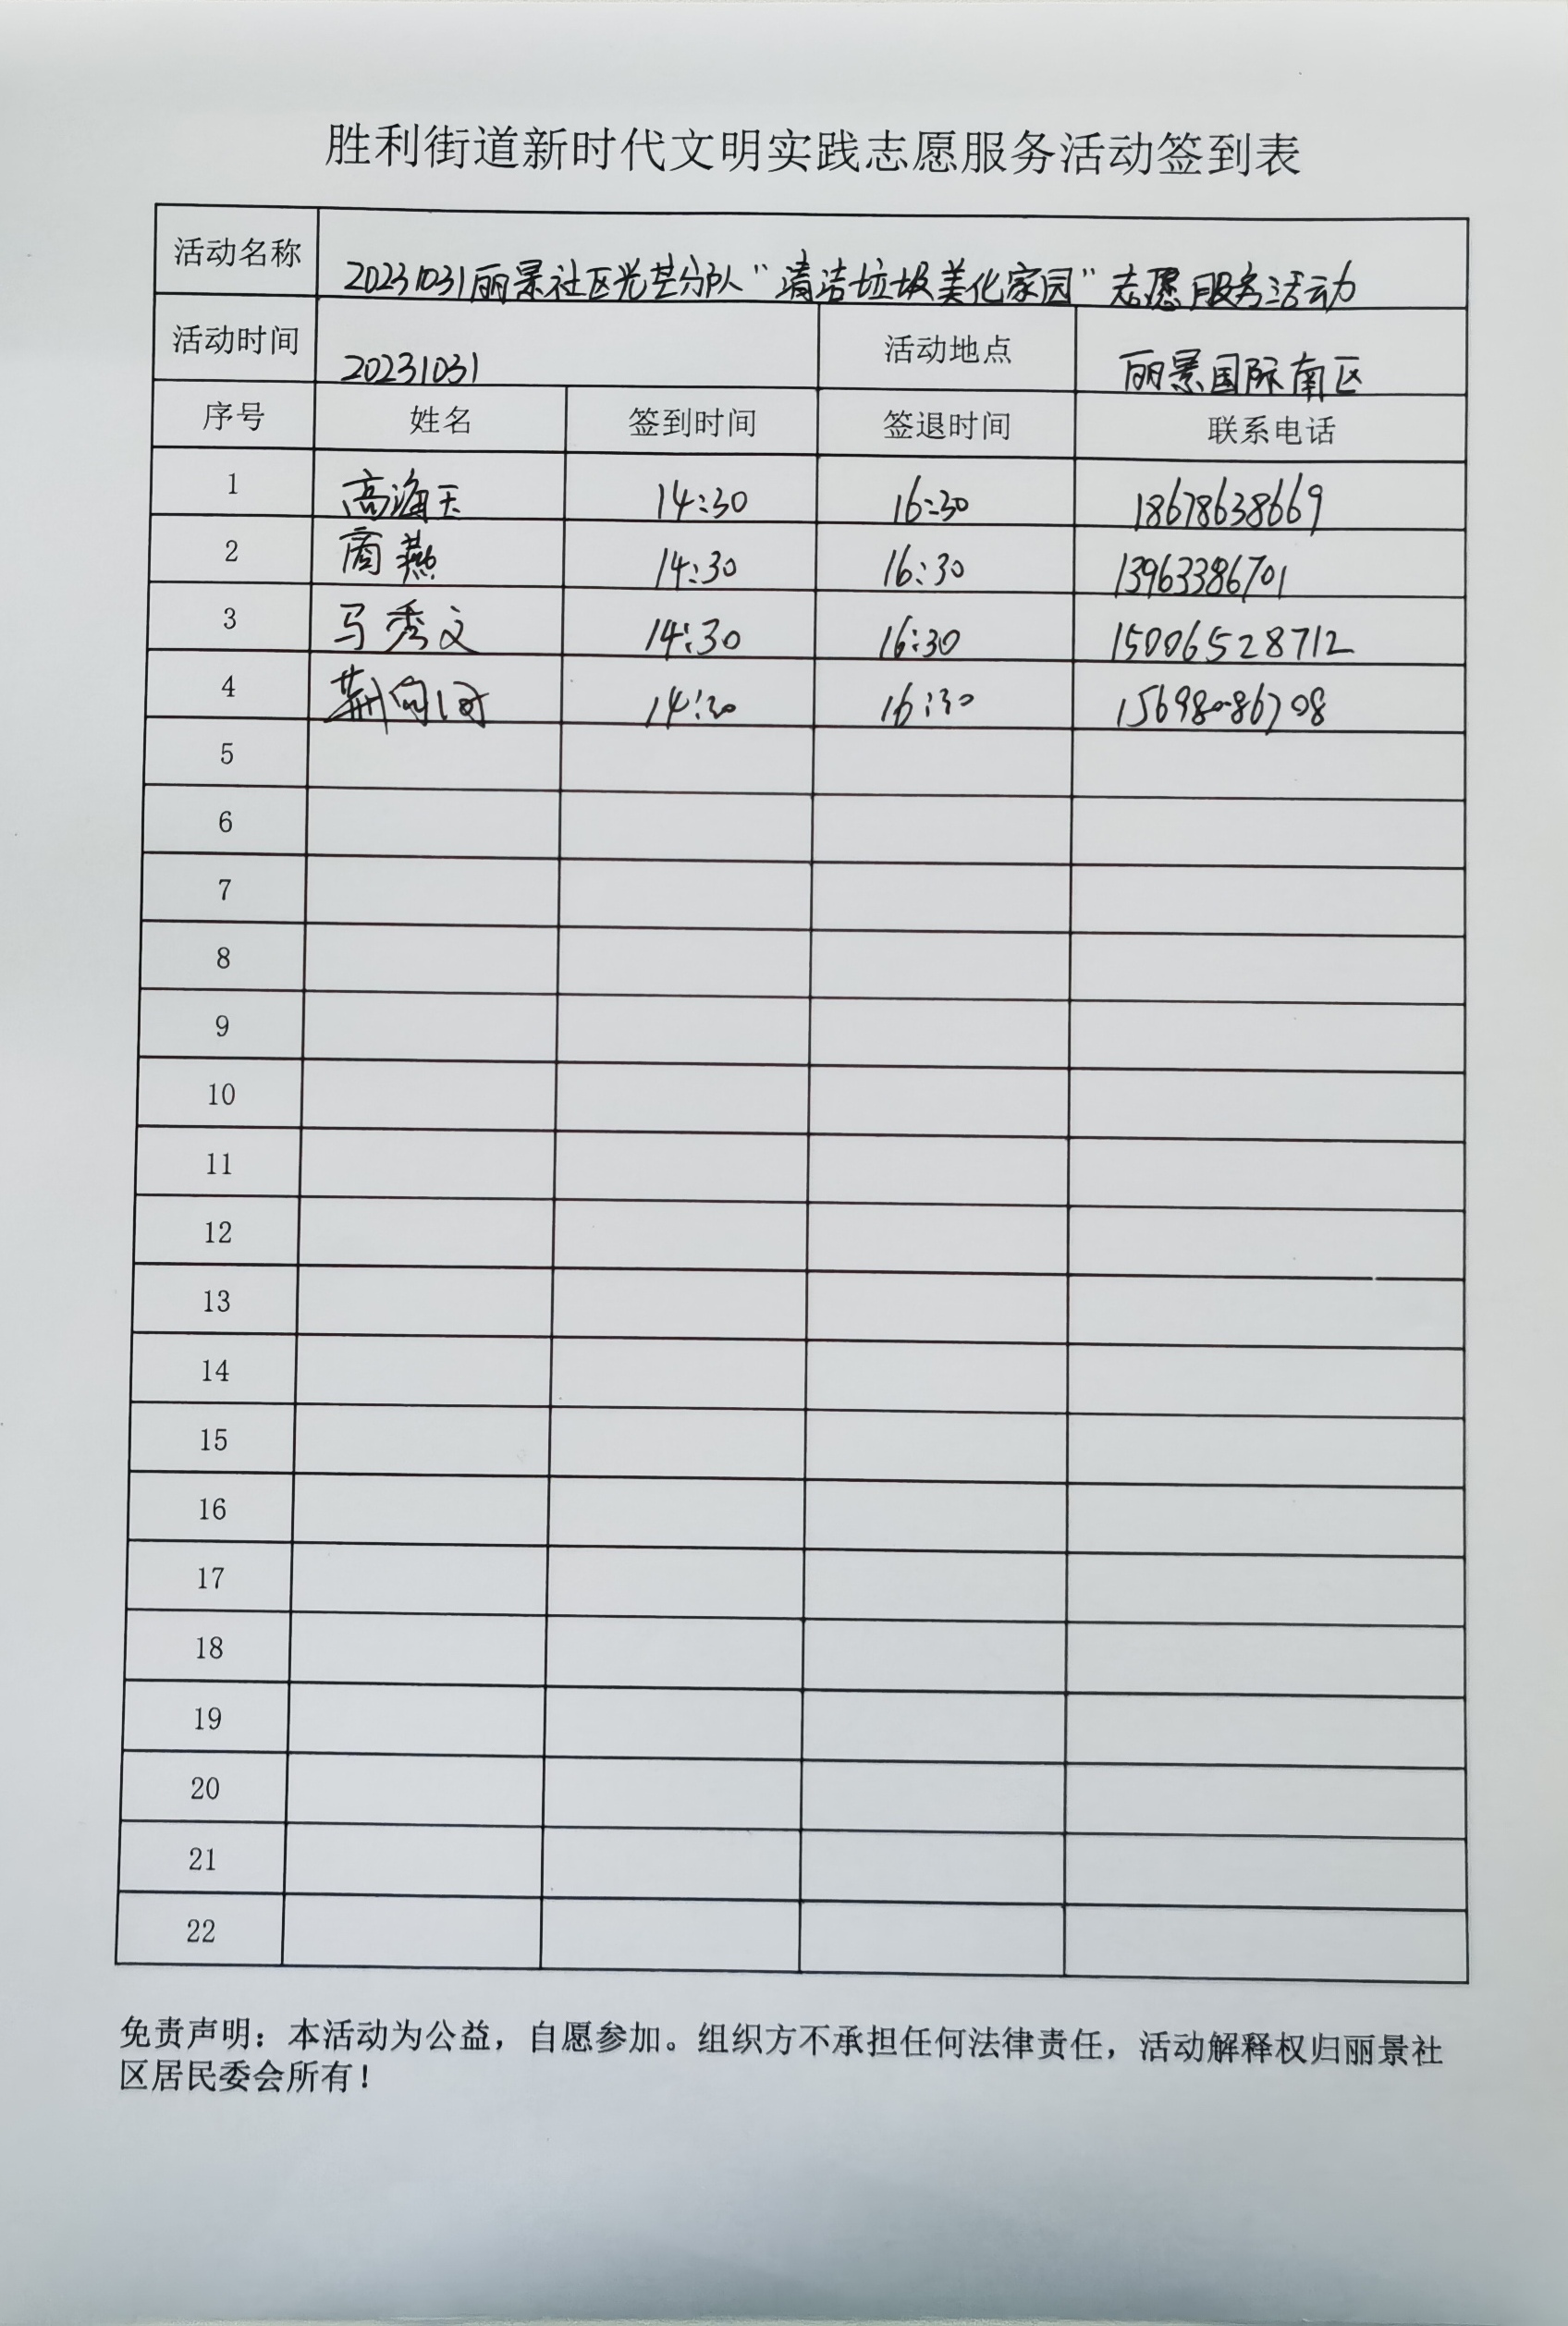 胜利街道新时代文明实践志愿服务活动签到表
活动名称 20231031丽景社区光芒分队“清洁垃圾美化家园”志愿服务活动
活动时间 20231031 活动地点 丽景国际南区
序号 姓名 签到时间 签退时间 联系电话
1 高海天 14:30 16:30 18678638669
2 商燕 14:30 16:30 13963386701
3 马秀文 14:30 16:30 15006528712
4 荆向 14:30 16:30 15698086708
5
6
7
8
9
10
11
12
13
14
15
16
17
18
19
20
21
22
免责声明：本活动为公益，自愿参加。组织方不承担任何法律责任，活动解释权归丽景社
区居民委会所有！